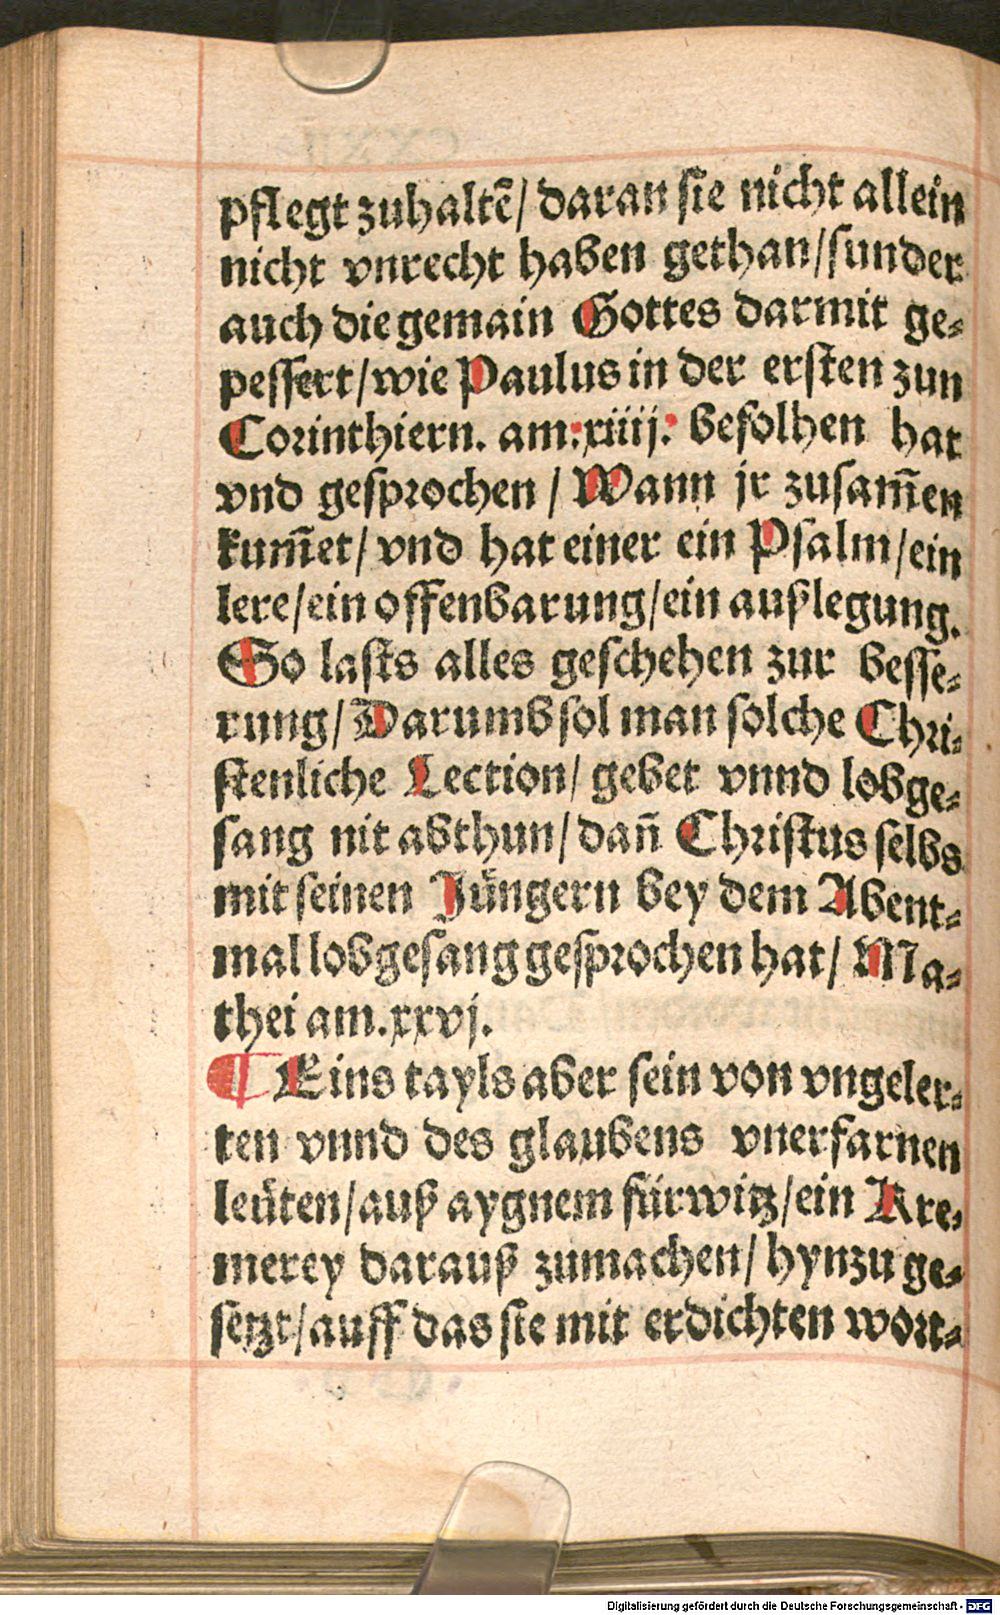 pflegt zuhaltē/ daran sie nicht allein
nicht vnrecht haben gethan/sunder
auch die gemain Gottes darmit ge⸗
pessert/wie Paulus in der ersten zun
Corinthiern. am:xiiij: befolhen hat
vnd gesprochen / Wann jr zusam̄en
kum̄et/ vnd hat einer ein Psalm/ein
lere/ein offenbarung/ein außlegung.
So lasts alles geschehen zur besse⸗
rung/ Darumb sol man solche Chri⸗
stenliche Lection/ gebet vnnd lobge⸗
sang nit abthun/ dan̄ Christus selbs
mit seinen Jüngern bey dem Abent⸗
mal lobgesang gesprochen hat/ Ma⸗
thei am.xxvj.
¶ Eins tayls aber sein von vngeler⸗
ten vnnd des glaubens vnerfarnen
leüten/auß aygnem fürwitz/ein Kre⸗
merey darauß zumachen/ hynzu ge⸗
setzt/auff das sie mit erdichten wort⸗
Digitalisierung gefördert durch die Deutsche Forschungsgemeinschaft - DFG